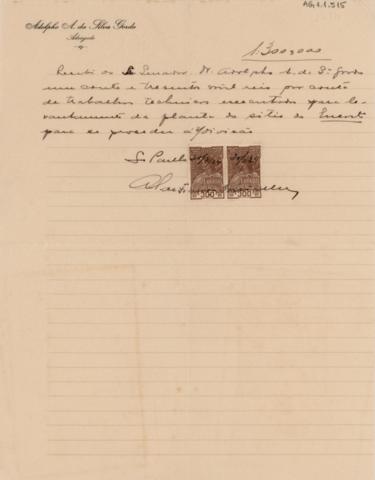 AG.1.1.515
Adolpho A. da Silva Gordo
Advogado
1.300$000
Recebi do Sr Senador Dr Adolpho A. da Sa Gordo
um conto e tresentos mil reis por conta
de trabalhos technicos executados para le-
vantamento da planta do sitio do
para se proceder á divisão
S. Paulo
300 300